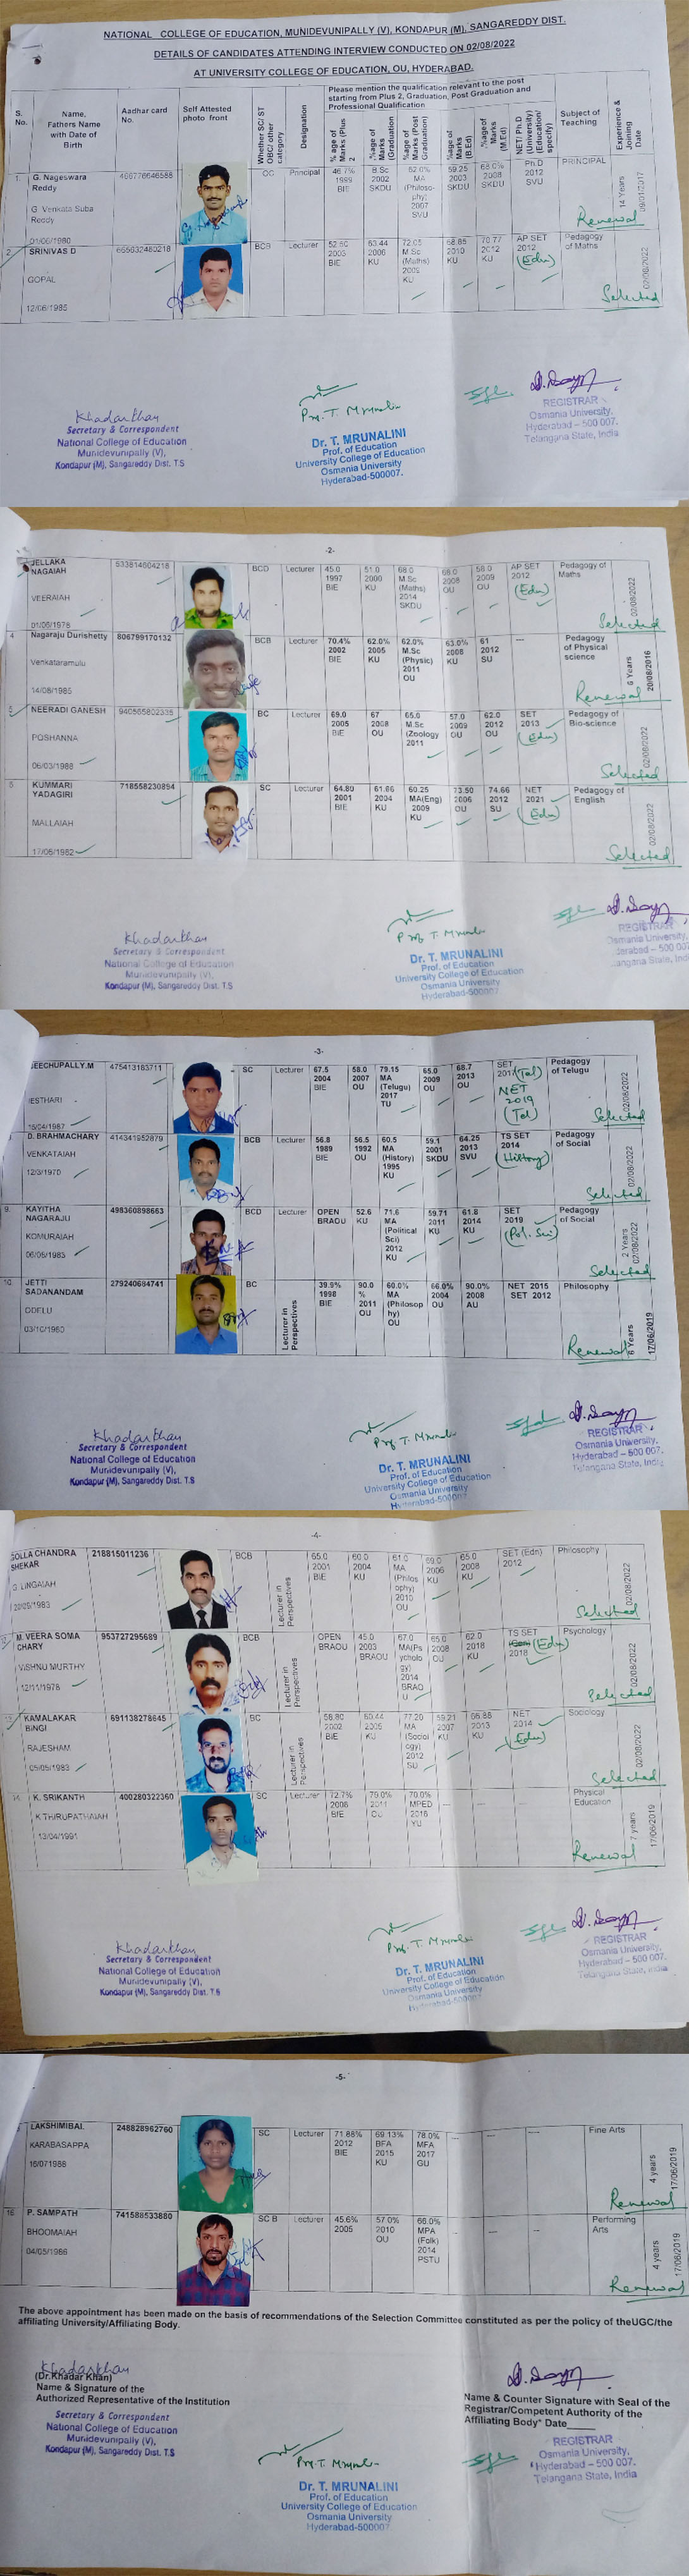 NATIONAL COLLEGE OF EDUCATION, MUNIDEVUNIPALLY (V), KONDAPUR (M), SANGAREDDY DIST.
DETAILS OF CANDIDATES ATTENDING INTERVIEW CONDUCTED ON 02/08/2022
AT UNIVERSITY COLLEGE OF EDUCATION, OU, HYDERABAD.
S. No. Name, Fathers Name with Date of Birth Aadhar card No. Self Attested photo front Whether SC/ ST OBC/ other category Designation
Please mention the qualification relevant to the post starting from Plus 2, Graduation, Post Graduation and Professional Qualification
% age of Marks (Plus 2 %age of Marks (Graduation %age of Marks (Post Graduation) %age of Marks (B.Ed) %age of Marks (M.Ed) NET/ Ph.D (University) (Education/ specify) Subject of Teaching Experience & Joining Date
1. G. Nageswara Reddy OC Principal 46.7% 1999 BIE B.Sc 2002 SKDU 52.0% MA (Philosophy) 2007 SVU 59.25 2003 SKDU 68.0% 2008 SKDU Ph.D 2012 SVU PRINCIPAL 14 Years 09/01/2017
G Venkata Suba Reddy
01/06/1980
Renewal
2. SRINIVAS D BCB Lecturer BIE 63.44 2006 KU 72.05 M.Sc (Maths) 2009 KU 68.85 2010 KU 70.77 2012 KU AP SET 2012 (Edn) Pedagogy of Maths 02/08/2022
GOPAL
12/06/1985
Selected
Khadarkhan
Secretary & Correspondent
National College of Education
Munidevunipally (V),
Kondapur (M), Sangareddy Dist. T.S
Prof. T. Mrunalini
Dr. T. MRUNALINI
Prof. of Education
University College of Education
Osmania University
Hyderabad-500007.
REGISTRAR
Osmania University,
Hyderabad – 500 007.
Telangana State, India
-2-
JELLAKA NAGAIAH 533814604218 BCD Lecturer 45.0 1997 BIE 51.0 2000 KU 68.0 M.Sc (Maths) 2014 SKDU 68.0 2008 OU 58.0 2009 OU AP SET 2012 (Edn) Pedagogy of Maths 02/08/2022
VEERAIAH
01/06/1978
Selected
4 Nagaraju Durishetty 806799170132 BCB Lecturer 70.4% 2002 BIE 62.0% 2005 KU 62.0% M.Sc (Physic) 2011 OU 63.0% 2008 KU 61 2012 SU — Pedagogy of Physical science 6 Years 20/08/2016
Venkataramulu
14/08/1985
Renewal
5 NEERADI GANESH BC Lecturer 69.0 2005 BIE 67 2008 OU 65.0 M.Sc (Zoology 2011 57.0 2009 OU 62.0 2012 OU SET 2013 (Edn) Pedagogy of Bio-science 02/08/2022
POSHANNA
06/03/1988
Selected
6 KUMMARI YADAGIRI 718558230894 SC Lecturer 64.80 2001 BIE 61.66 2004 KU 60.25 MA(Eng) 2009 KU 73.50 2006 OU 74.66 2012 SU NET 2021 (Edn) Pedagogy of English 02/08/2022
MALLAIAH
17/06/1982
Selected
Khadarkhan
Secretary & Correspondent
National College of Education
Munidevunipally (V),
Kondapur (M), Sangareddy Dist. T.S
Prof. T. Mrunalini
Dr. T. MRUNALINI
Prof. of Education
University College of Education
Osmania University
Hyderabad-500007.
REGISTRAR
Osmania University,
Hyderabad – 500 007
-3-
JEECHUPALLY.M 475413183711 SC Lecturer 67.5 2004 BIE 58.0 2007 OU 79.15 MA (Telugu) 2017 TU 65.0 2009 OU 68.7 2013 OU SET (Tel) NET 2019 (Tel) Pedagogy of Telugu 02/08/2022
Selected
D. BRAHMACHARY 414341952879 BCB Lecturer 56.8 1989 BIE 56.5 1992 OU 60.5 MA (History) 1995 KU 59.1 2001 SKDU 64.25 2013 SVU TS SET 2014 (History) Pedagogy of Social 02/08/2022
VENKATAIAH
12/3/1970
Selected
9. KAYITHA NAGARAJU 498360898663 BCD Lecturer OPEN BRAOU 52.6 KU 71.6 MA (Political Sci) 2012 KU 59.71 2011 KU 61.8 2014 KU SET 2019 (Pol. Sci) Pedagogy of Social 2 Years 02/08/2022
KOMURAIAH
06/05/1983
Selected
10. JETTI SADANANDAM 279240684741 BC Lecturer in Perspectives 39.9% 1998 BIE 90.0 % 2011 OU 60.0% MA (Philosophy) OU 66.0% 2004 OU 90.0% 2008 AU NET 2015 SET 2012 Philosophy 6 Years 17/06/2019
ODELU
Renewal
Khadarkhan
Secretary & Correspondent
National College of Education
Munidevunipally (V),
Kondapur (M), Sangareddy Dist. T.S
Prof. T. Mrunalini
Dr. T. MRUNALINI
Prof. of Education
University College of Education
Osmania University
REGISTRAR
Osmania University,
Hyderabad – 500 007.
Telangana State, India
-4-
GOLLA CHANDRA SHEKAR 218815011236 BCB Lecturer in Perspectives 65.0 2001 BIE 60.0 2004 KU 61.0 MA (Philosophy) 2010 OU 69.0 2006 KU 65.0 2008 KU SET (Edn) 2012 Philosophy 02/08/2022
LINGAIAH
Selected
M. VEERA SOMA CHARY 953727295689 BCB Lecturer in Perspectives OPEN BRAOU 45.0 2003 BRAOU 67.0 MA(Psychology) 2014 BRAOU 65.0 2008 OU 62.0 2018 KU TS SET (Edn) 2018 Psychology 02/08/2022
VISHNU MURTHY
12/11/1978
Selected
KAMALAKAR BINGI 691138278645 BC Lecturer in Perspectives 58.80 2002 BIE 2005 KU 77.20 MA (Sociology) 2012 SU 59.21 2007 KU 66.88 2013 KU NET 2014 (Edn) Sociology 02/08/2022
RAJESHAM
05/05/1983
Selected
14 K. SRIKANTH 400280322360 SC Lecturer 72.7% 2008 BIE 70.0% MPED 2016 YU Physical Education 7 years 17/06/2019
K THIRUPATHAIAH
13/04/1991
Renewal
Khadarkhan
Secretary & Correspondent
National College of Education
Munidevunipally (V),
Kondapur (M), Sangareddy Dist. T.S
Prof. T. Mrunalini
Dr. T. MRUNALINI
Prof. of Education
University College of Education
Osmania University
REGISTRAR
Osmania University,
Hyderabad – 500 007.
Telangana State, India
-5-
LAKSHIMIBAI. 248828962760 SC Lecturer 71.88% 2012 BIE 69.13% BFA 2015 KU 78.0% MFA 2017 GU — — — Fine Arts 4 years 17/06/2019
KARABASAPPA
16/071988
Renewal
16 P. SAMPATH 741588533880 SC B Lecturer 45.6% 2005 57.0% 2010 OU 66.0% MPA (Folk) 2014 PSTU - - - Performing Arts 4 years 17/06/2019
BHOOMAIAH
04/05/1986
Renewal
The above appointment has been made on the basis of recommendations of the Selection Committee constituted as per the policy of theUGC/the
affiliating University/Affiliating Body.
Khadarkhan
(Dr.Khadar Khan)
Name & Signature of the
Authorized Representative of the Institution
Secretary & Correspondent
National College of Education
Munidevunipally (V),
Kondapur (M), Sangareddy Dist. T.S
Prof. T. Mrunalini
Dr. T. MRUNALINI
Prof. of Education
University College of Education
Osmania University
Hyderabad-500007.
Name & Counter Signature with Seal of the
Registrar/Competent Authority of the
Affiliating Body* Date____
REGISTRAR
Osmania University,
Hyderabad – 500 007.
Telangana State, India